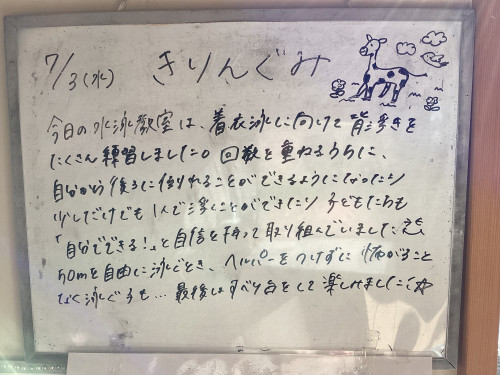 7/3(水) きりんぐみ
今日の水泳教室は、着衣泳に向けて背浮きを
たくさん練習しました。回数を重ねるうちに、
自分から後ろに倒れることができるようになったり
少しだけでも1人で浮くことができたり 子どもたちも
「自分でできる!」と自信を持って取り組んでいました
50mを自由に泳ぐとき、ヘルパーをつけずに 怖がること
なく泳ぐ子も... 最後はすべり台をして楽しみました